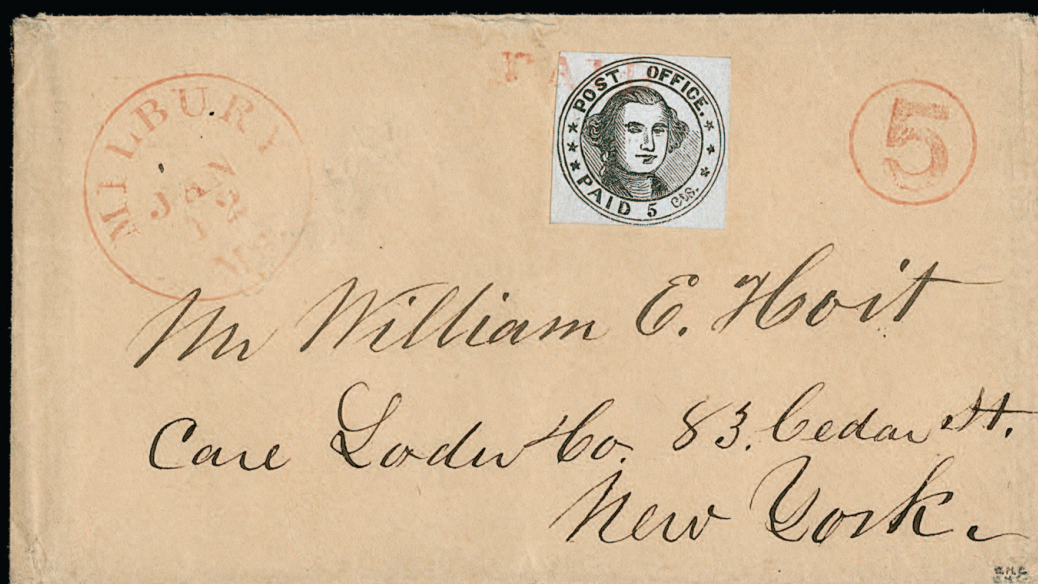 MILBURY
JAN
12
MS.
PAID
POST OFFICE.
PAID 5 Cts.
5
Mr William E. Hoit
Care Loder & Co. 83. Cedar St.
New York.